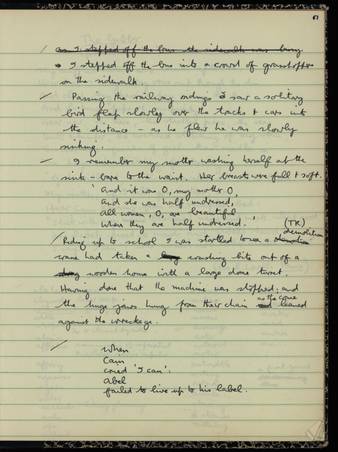 61
as I stepped off the bus the sidewalk was busy
I stepped off the bus into a crowd of grasshoppers
on the sidewalk
Passing the railway sidings I saw a solitary
bird flap slowly over the tracks & cars into
the distance - as he flew he was slowly
sinking.
I remember my mother washing herself at the
sink - bare to the waist. Her breasts were full & soft.
'And it was O, my mother O,
And she was half undressed,
All women, O, are beautiful
When they are half undressed.'
(TR)
demolition
Riding up to school I was startled to see a
crane had taken a crunching bite out of a
wooden home with a large dome turret.
Having done that the machine was stopped; and
as the crane
the huge jaws hung from their chain leaned
against the wreckage.
When
Cain
cried 'I can'.
Abel
failed to live up to his label.